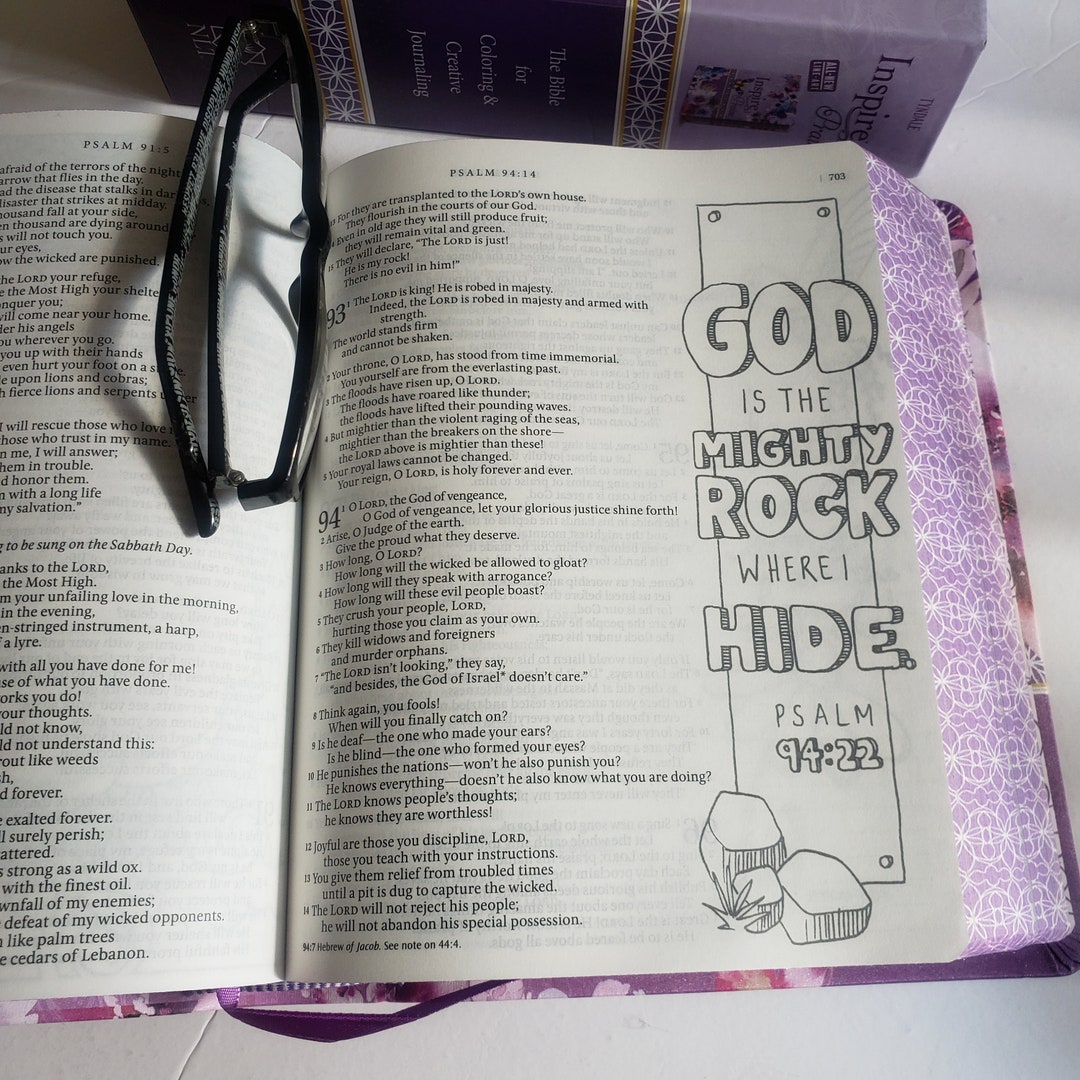 TYNDALE
Inspire
ALL-NEW
LINE-ART
The Bible
for
Coloring &
Creative
Journaling
NLT
PSALM 91:5
afraid of the terrors of the night
arrow that flies in the day.
ad the disease that stalks in dar
disaster that strikes at midday.
housand fall at your side,
en thousand are dying around
s will not touch you.
ur eyes,
ow the wicked are punished.
he LORD your refuge,
e the Most High your shelte
onquer you;
will come near your home.
der his angels
ou wherever you go.
you up with their hands
even hurt your foot on a s
e upon lions and cobras;
h fierce lions and serpents u
I will rescue those who love
those who trust in my name.
n me, I will answer;
hem in trouble.
d honor them.
m with a long life
my salvation.”
g to be sung on the Sabbath Day.
anks to the LORD,
the Most High.
m your unfailing love in the morning,
in the evening,
en-stringed instrument, a harp,
f a lyre.
with all you have done for me!
se of what you have done.
orks you do!
your thoughts.
ld not know,
ld not understand this:
rout like weeds
sh,
d forever.
e exalted forever.
ll surely perish;
attered.
s strong as a wild ox.
with the finest oil.
wnfall of my enemies;
defeat of my wicked opponents.
n like palm trees
e cedars of Lebanon.
PSALM 94:14
| 703
13 For they are transplanted to the LORD’s own house.
They flourish in the courts of our God.
4 Even in old age they will still produce fruit;
they will remain vital and green.
15 They will declare, “The LORD is just!
He is my rock!
There is no evil in him!”
93 1 The LORD is king! He is robed in majesty.
Indeed, the LORD is robed in majesty and armed with
strength.
The world stands firm
and cannot be shaken.
2 Your throne, O LORD, has stood from time immemorial.
You yourself are from the everlasting past.
3 The floods have risen up, O LORD.
The floods have roared like thunder;
the floods have lifted their pounding waves.
4 But mightier than the violent raging of the seas,
mightier than the breakers on the shore—
the LORD above is mightier than these!
5 Your royal laws cannot be changed.
Your reign, O LORD, is holy forever and ever.
94 1 O LORD, the God of vengeance,
O God of vengeance, let your glorious justice shine forth!
2 Arise, O Judge of the earth.
Give the proud what they deserve.
3 How long, O LORD?
How long will the wicked be allowed to gloat?
4 How long will they speak with arrogance?
How long will these evil people boast?
5 They crush your people, LORD,
hurting those you claim as your own.
6 They kill widows and foreigners
and murder orphans.
7 “The LORD isn’t looking,” they say,
“and besides, the God of Israel* doesn’t care.”
8 Think again, you fools!
When will you finally catch on?
9 Is he deaf—the one who made your ears?
Is he blind—the one who formed your eyes?
10 He punishes the nations—won’t he also punish you?
He knows everything—doesn’t he also know what you are doing?
11 The LORD knows people’s thoughts;
he knows they are worthless!
12 Joyful are those you discipline, LORD,
those you teach with your instructions.
13 You give them relief from troubled times
until a pit is dug to capture the wicked.
14 The LORD will not reject his people;
he will not abandon his special possession.
94:7 Hebrew of Jacob. See note on 44:4.
GOD
IS THE
MIGHTY
ROCK
WHERE I
HIDE.
PSALM
94:22